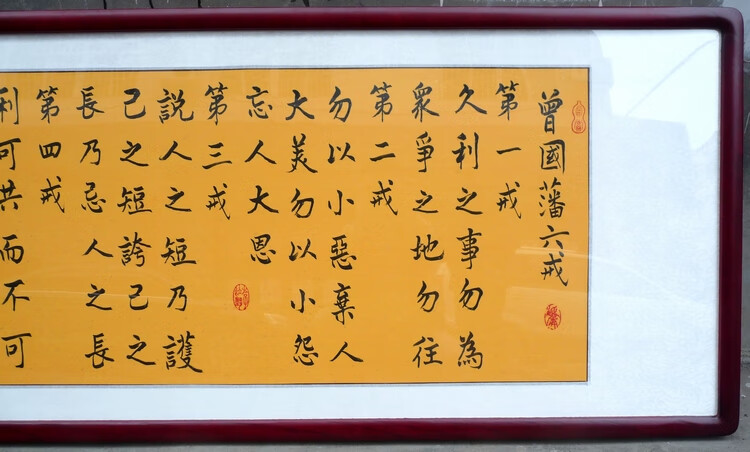 曾國藩六戒
第一戒
久利之事勿為
衆爭之地勿往
第二戒
勿以小惡棄人
大美勿以小怨
忘人大恩
第三戒
説人之短乃護
己之短誇己之
長乃忌人之長
第四戒
利可共而不可